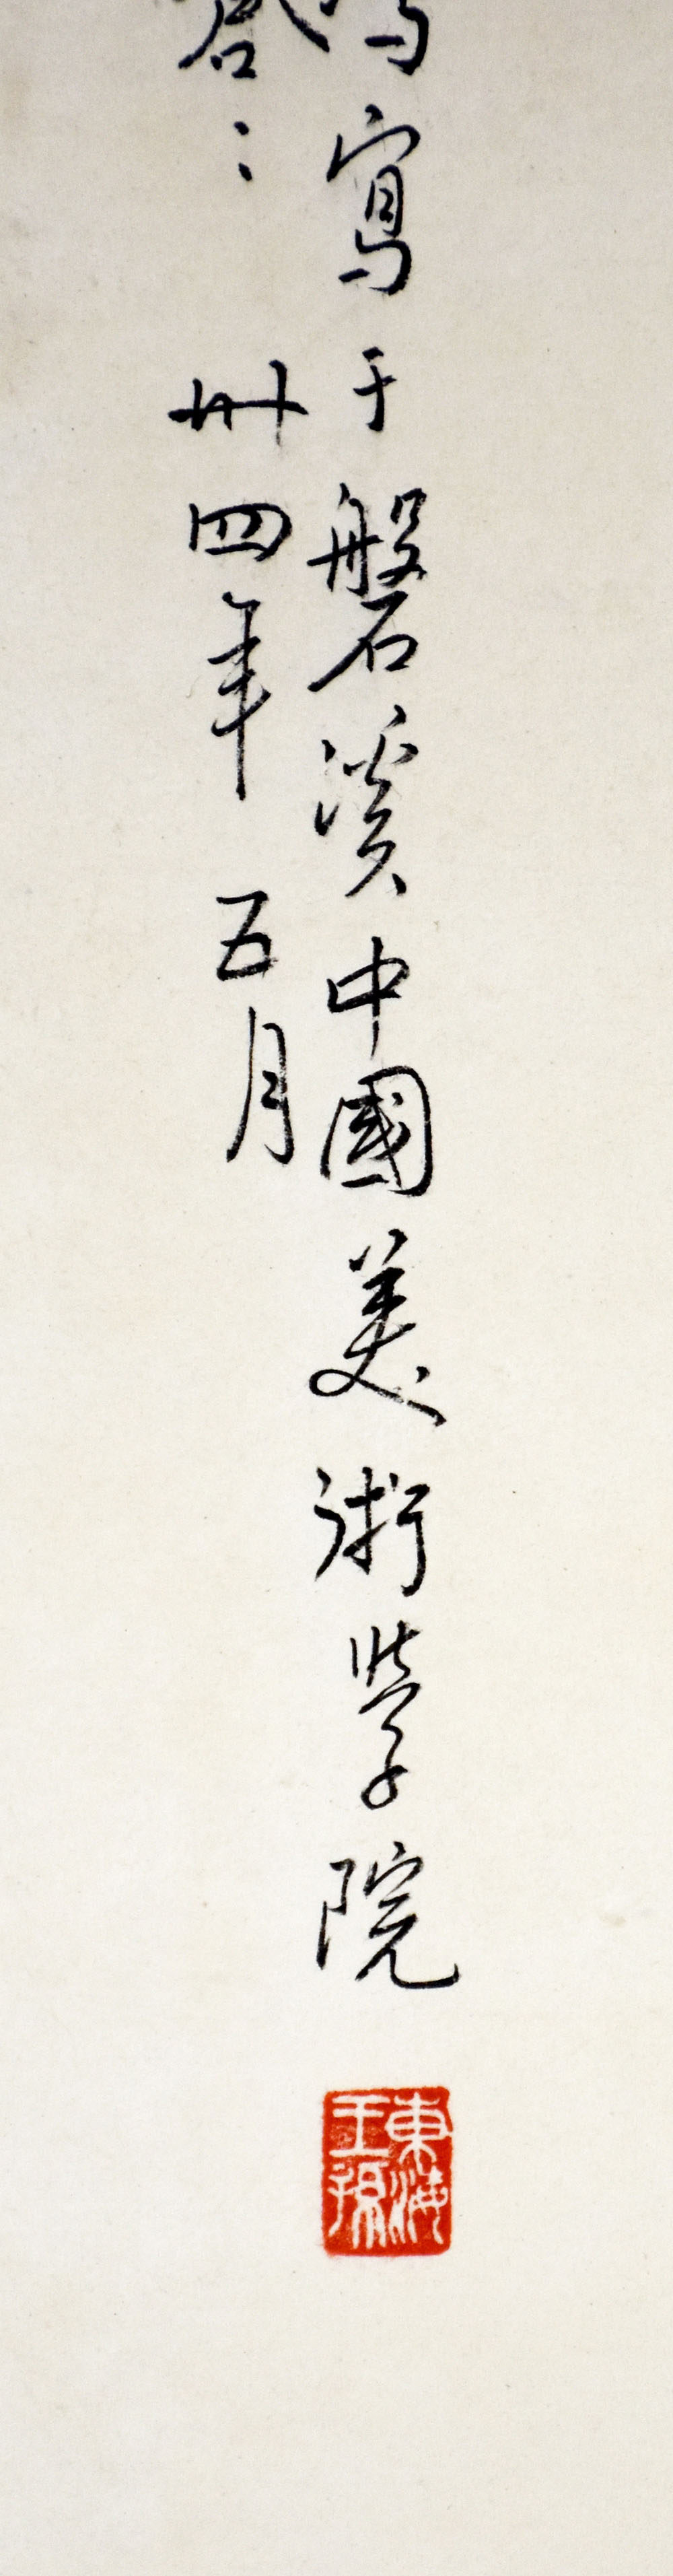 寫于磐溪中國美術學院
卅四年五月
東海
王孫